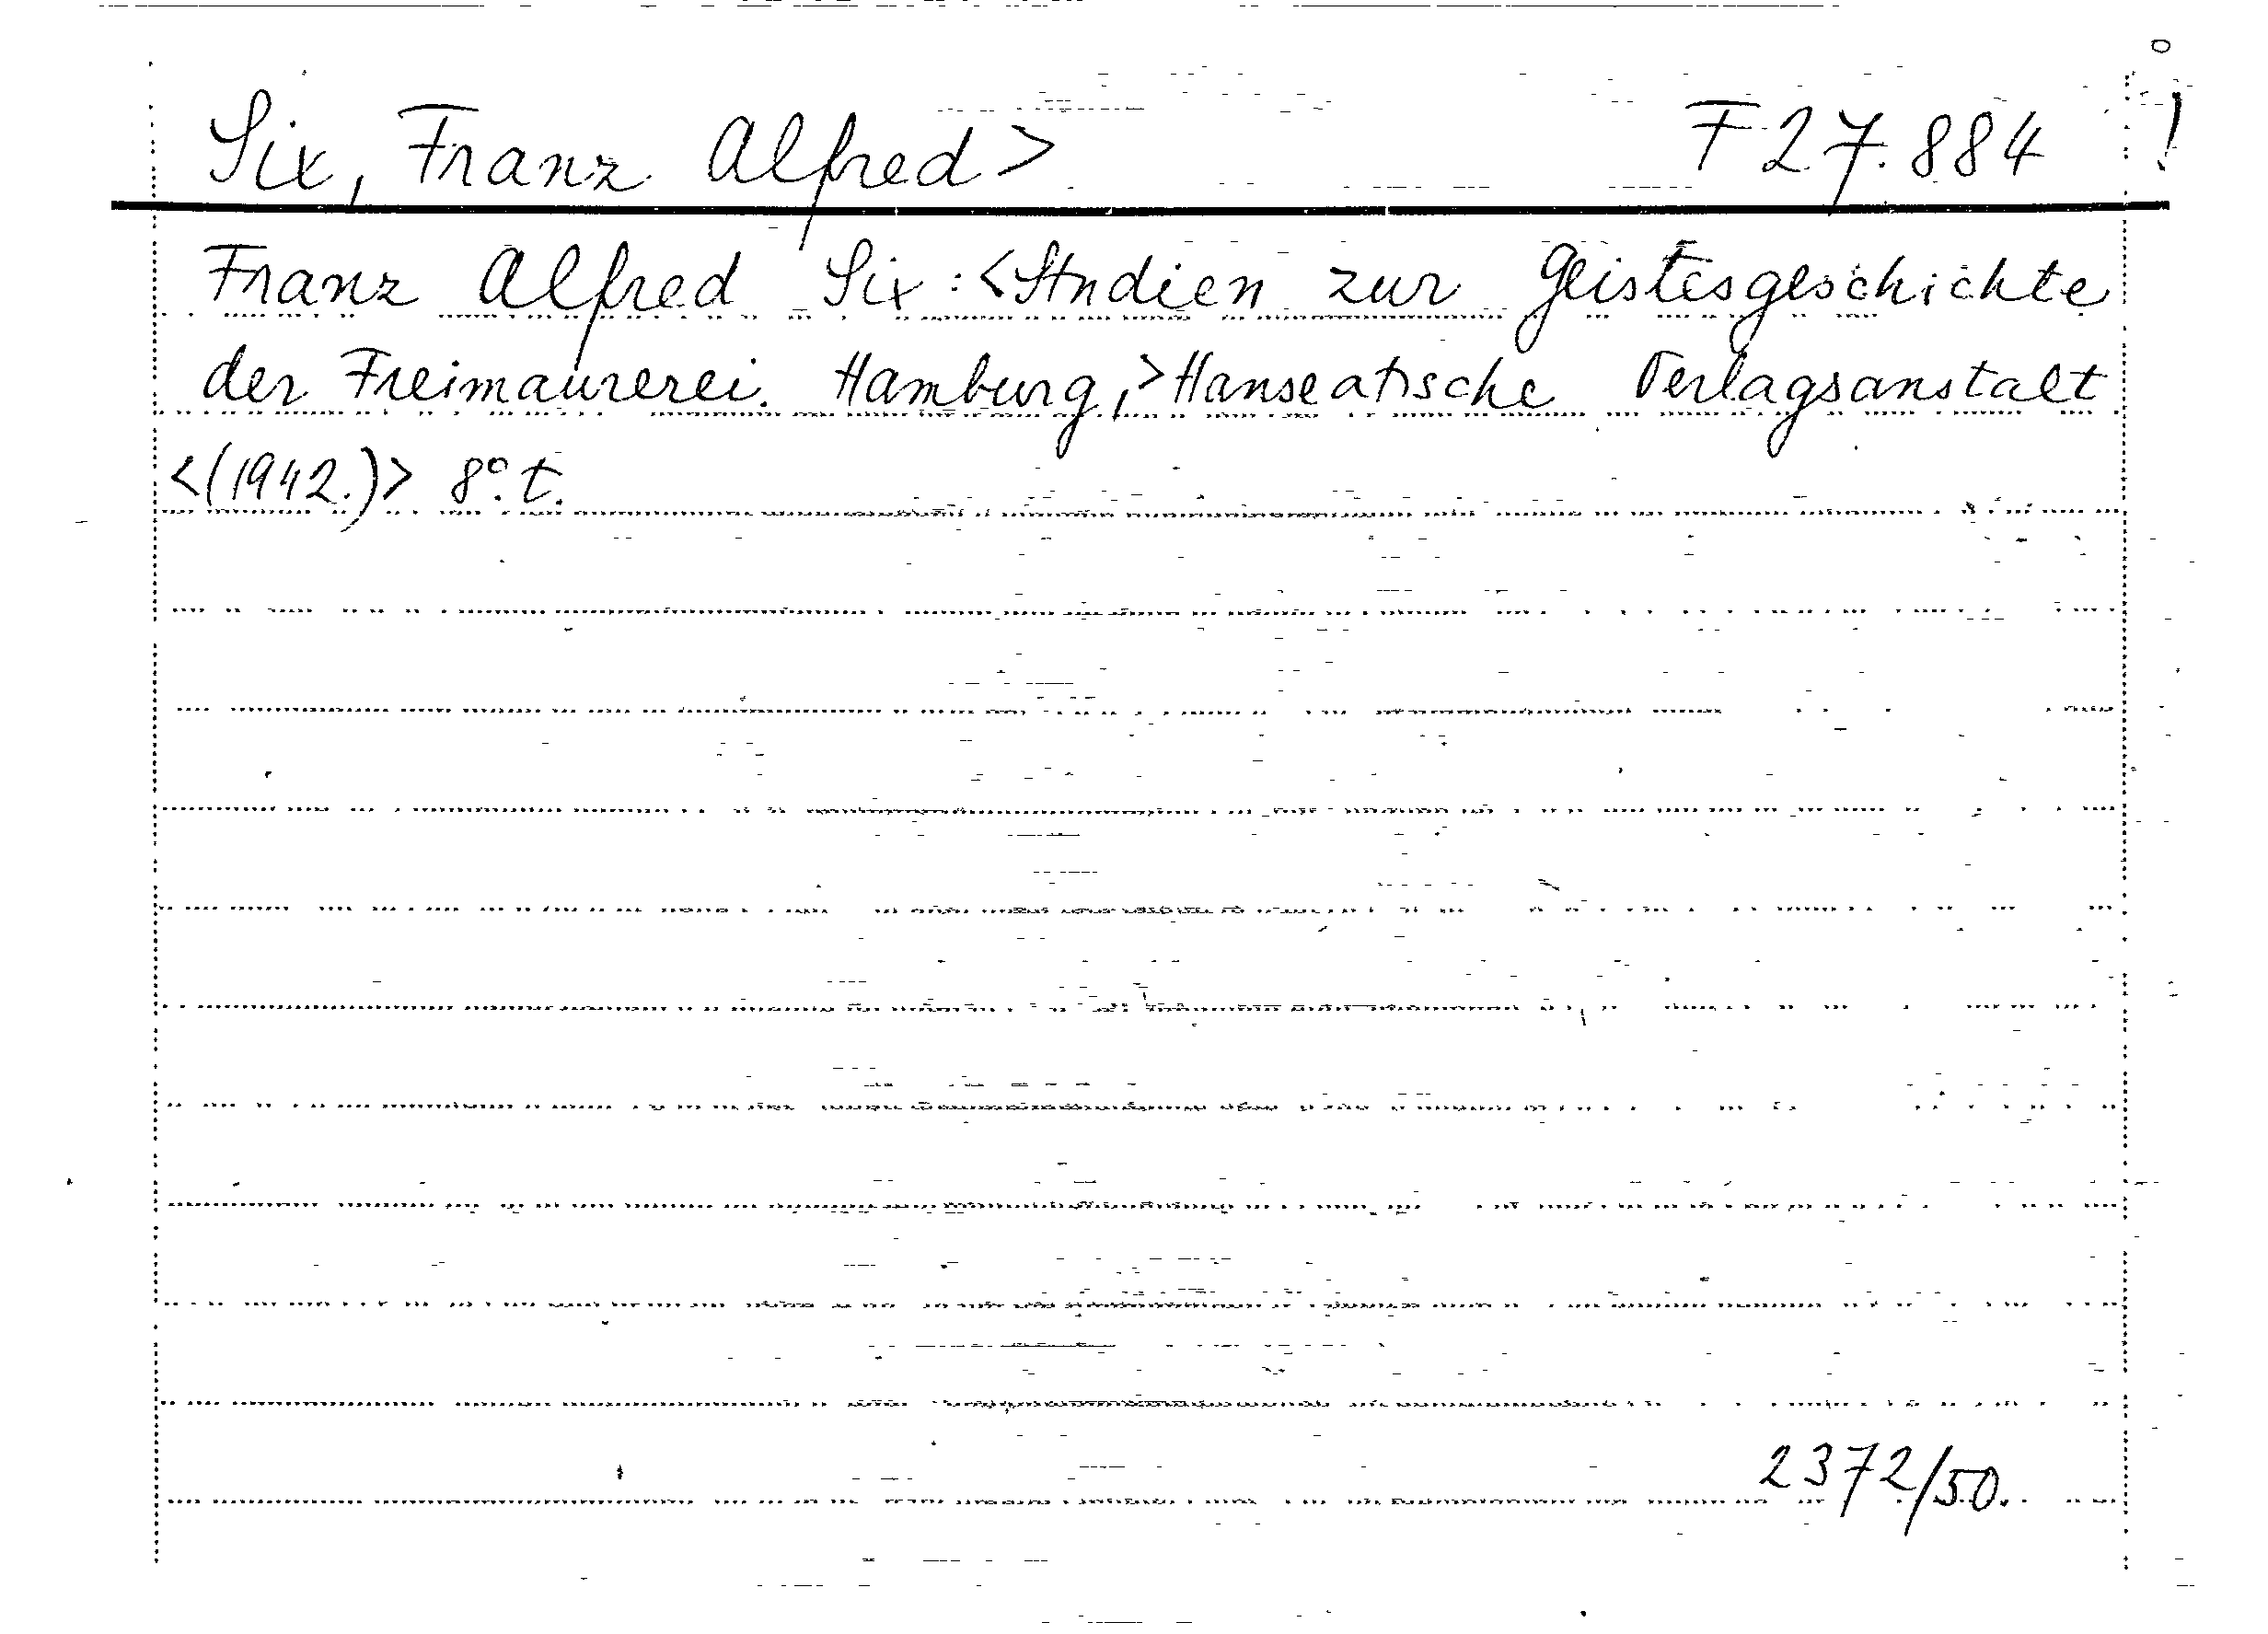 Six, Franz Alfred> F 27.884 !
Franz Alfred Six: <Studien zur Geistesgeschichte
der Freimaurerei. Hamburg,> Hanseatische Verlagsanstalt
<(1942.)> 8°. t.
2372/50.